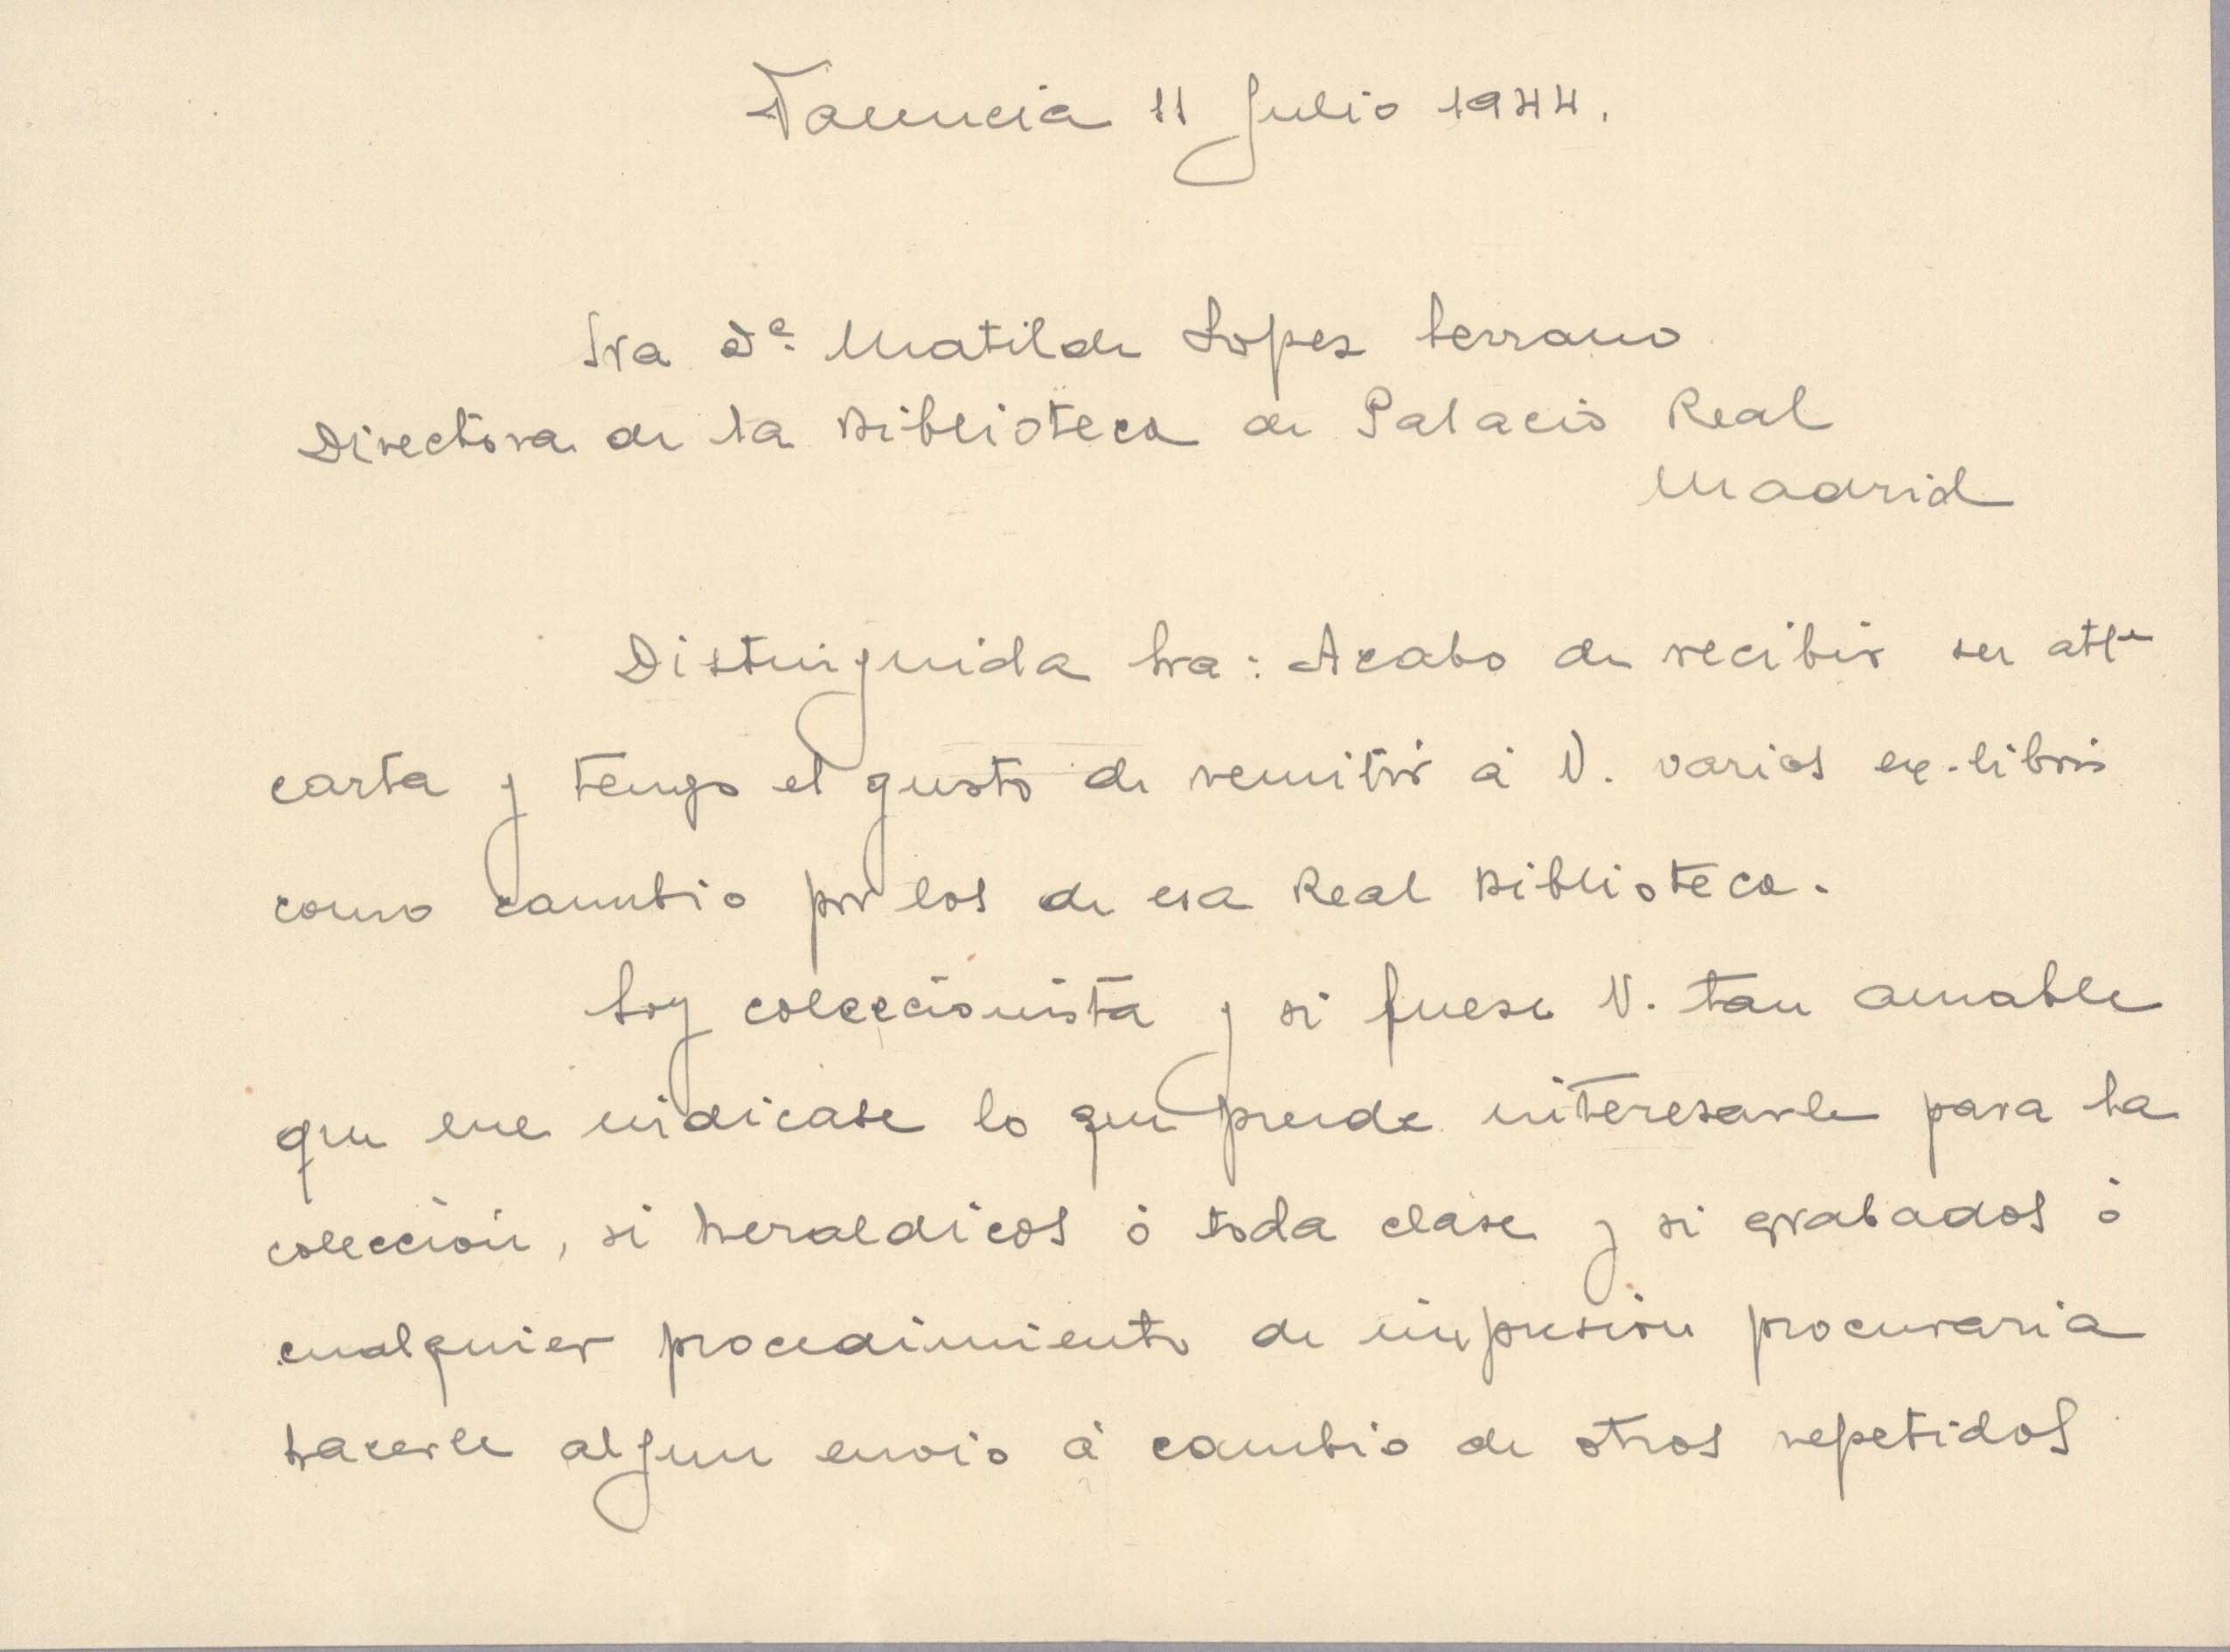 Valencia 11 Julio 1944.
Sra Dª. Matilde Lopez Serrano
Directora de la Biblioteca de Palacio Real
Madrid
Distinguida Sra: Acabo de recibir su attª
carta y tengo el gusto de remitir á V. varios ex-libris
como cambio por los de esa Real Biblioteca.
Soy coleccionista y si fuese V. tan amable
que me indicase lo que puede interesarle para la
colección, si heraldicos ó toda clase y si grabados ó
cualquier procedimiento de impresión procuraria
hacerle algun envio á cambio de otros repetidos